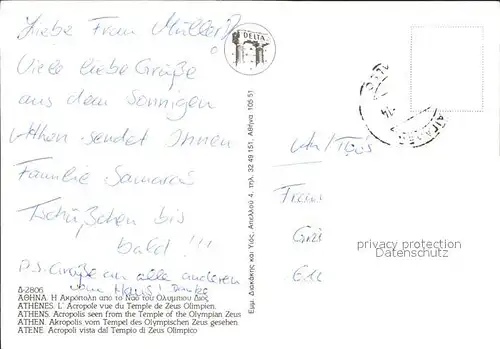 Liebe Frau Müller!
Viele liebe Grüße
aus dem Sonnigen
Athen sendet Ihnen
Familie Samaras
Tschüßchen bis
bald!!!
P.S. Grüße an alle anderen
vom Haus! Danke
DELTA
Δ-2806
ΑΘΗΝΑ. Η Ακρόπολη απο το Ναό του Ολυμπίου Διός
ATHENES. L' Acropole vue du Temple de Zeus Olimpien.
ATHENS. Acropolis seen from the Temple of the Olympian Zeus
ATHEN. Akropolis vom Tempel des Olympischen Zeus gesehen
ATENE. Acropoli vista dal Tempio di Zeus Olimpico
Εμμ. Διακάκης και Υιός, Απελλού 4, τηλ. 32 49 151, Αθήνα 105 51
An / Προς
Frau
privacy protection
Datenschutz